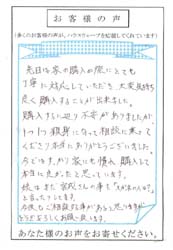 お客様の声
(多くのお客様の声が、ハウスウェーブを応援してくれています)
先日は家の購入の際にとても
丁寧に対応していただき、大変気持ち
良く購入することが出来ました。
購入するに辺り不安がありましたが、
1つ1つ親身になって相談に乗って
くださり本当にありがとうございました。
今ではすっかり家にも慣れ、購入して
本当に良かったと思っています。
娘はまだ宮尻さんの事を
と言ったりします。
今後もご相談する事があると思いますが
どうぞよろしくお願い致します。
あなた様のお声をお寄せください。